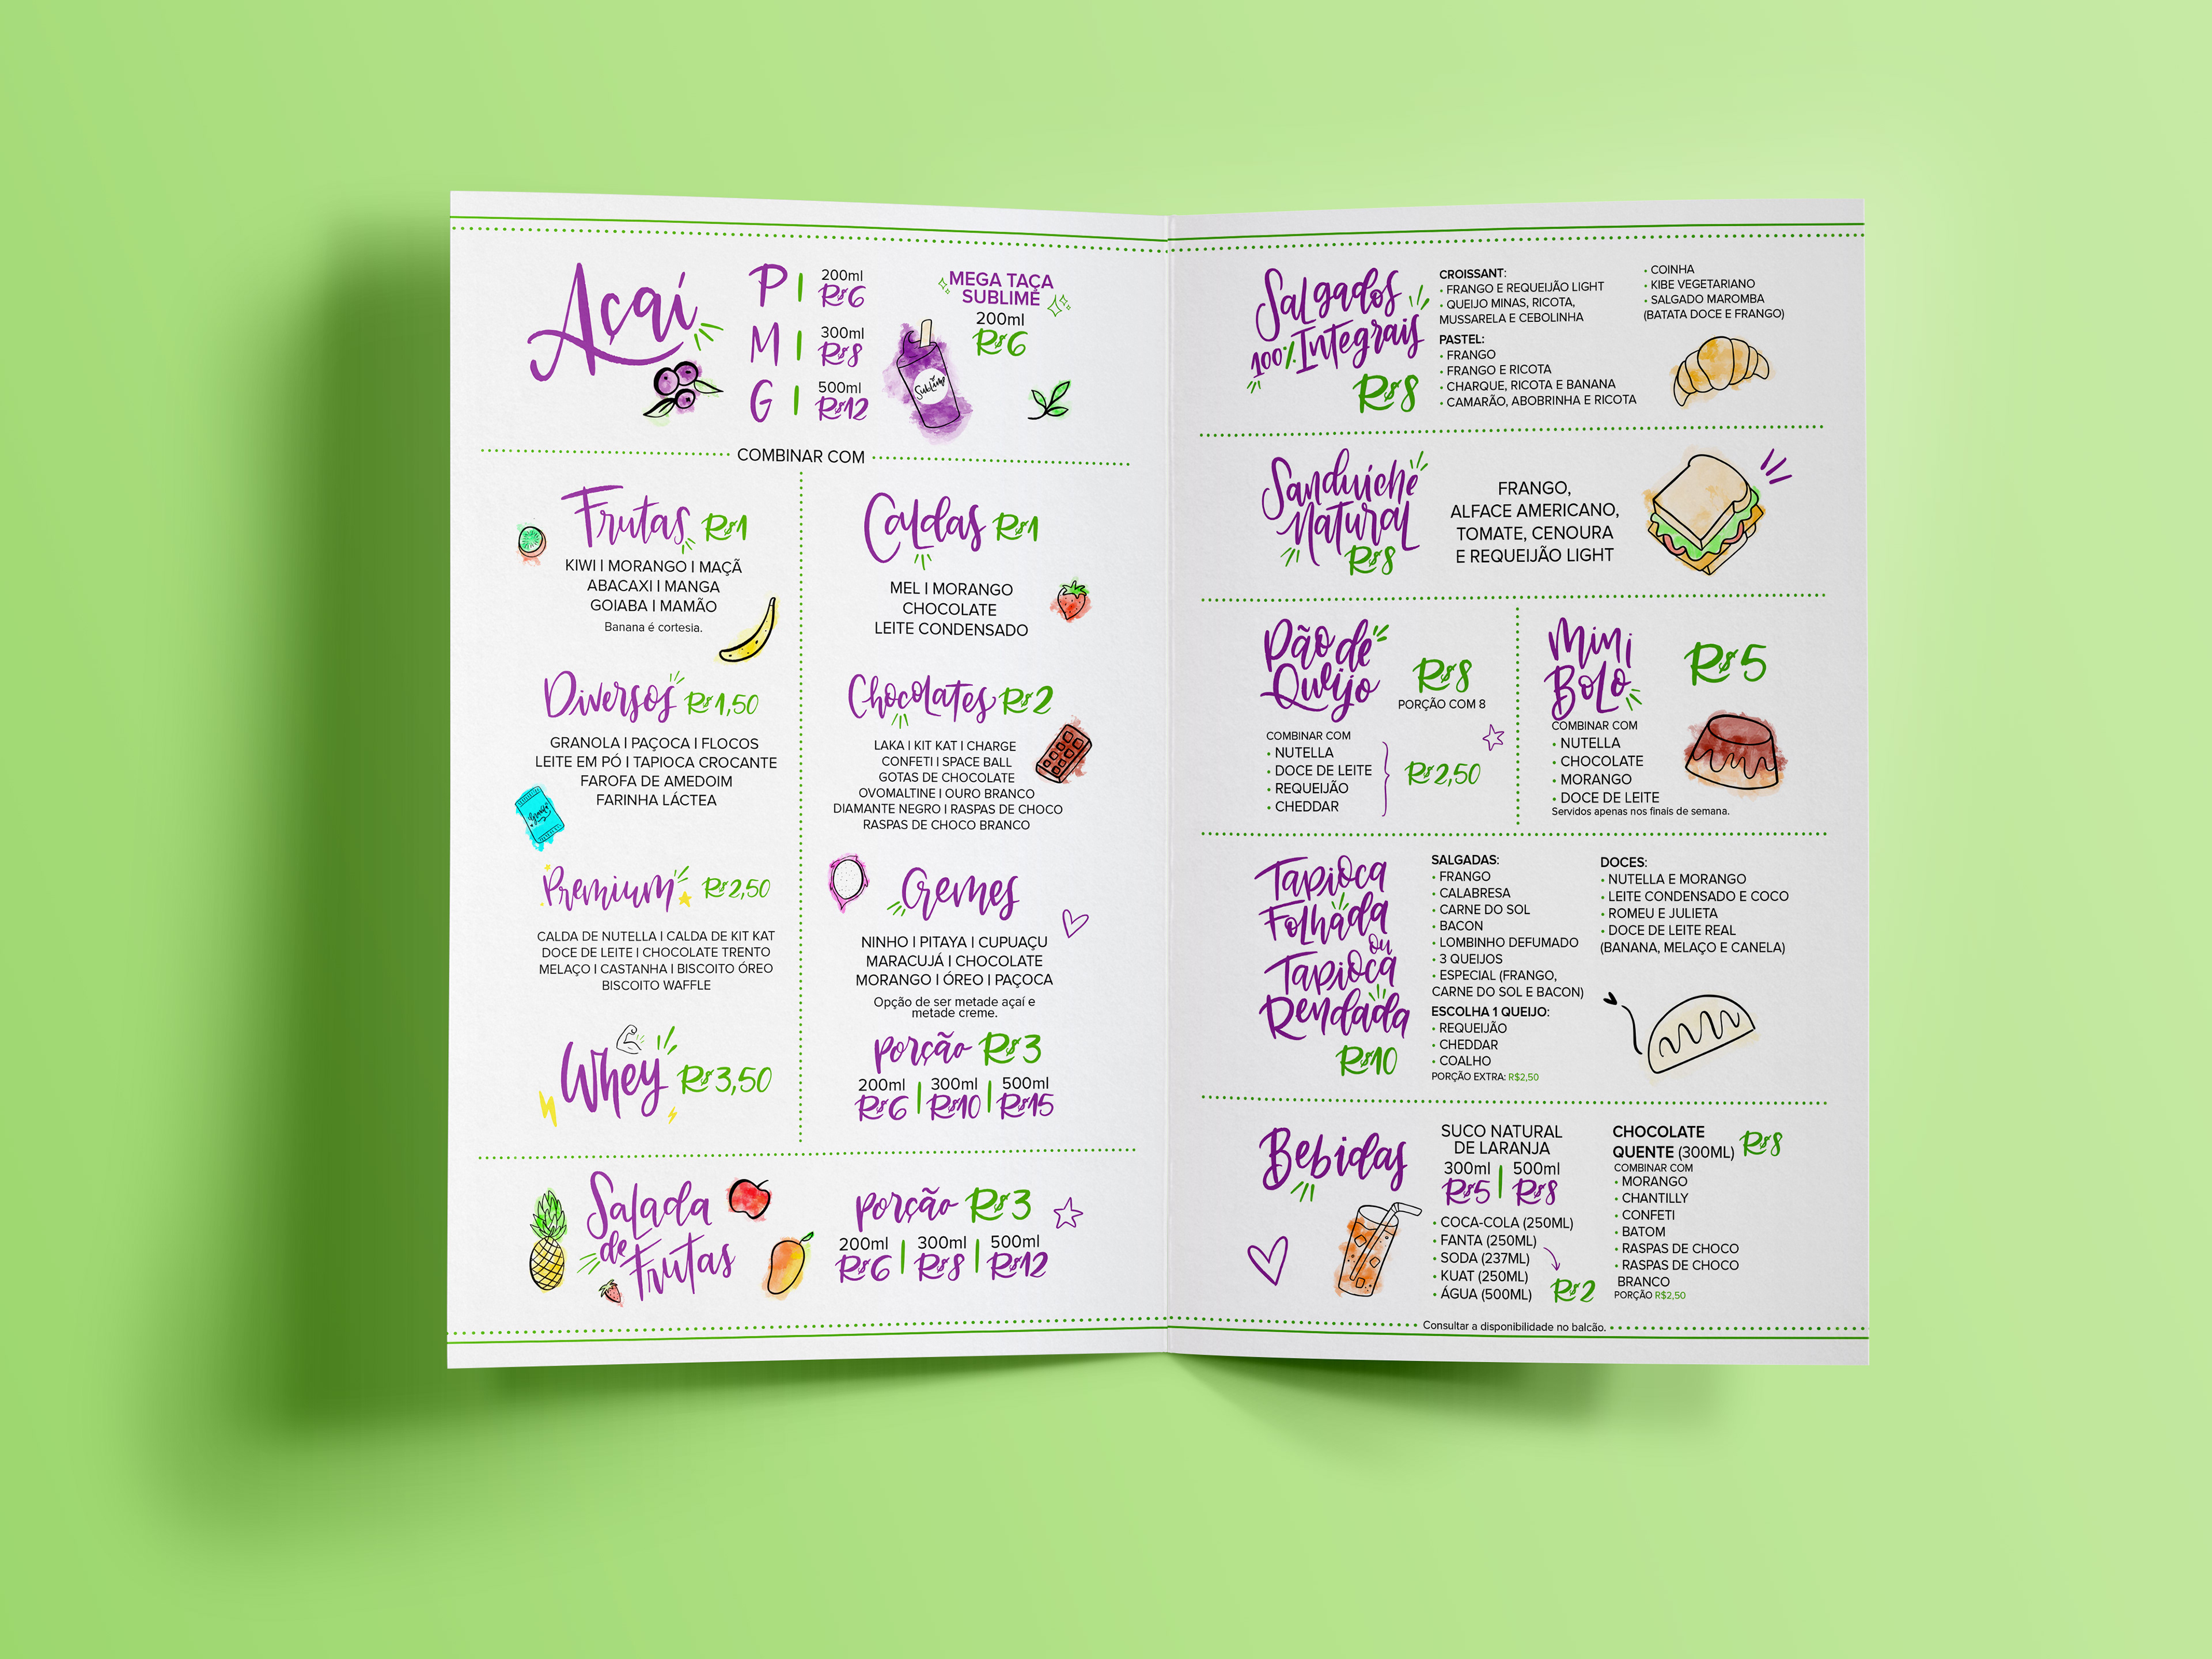 Açaí
P | 200ml R$6
M | 300ml R$8
G | 500ml R$12
MEGA TAÇA
SUBLIME
200ml
R$6
Sublime
COMBINAR COM
Frutas R$1
KIWI | MORANGO | MAÇÃ
ABACAXI | MANGA
GOIABA | MAMÃO
Banana é cortesia.
Diversos R$1,50
GRANOLA | PAÇOCA | FLOCOS
LEITE EM PÓ | TAPIOCA CROCANTE
FAROFA DE AMEDOIM
FARINHA LÁCTEA
Premium R$2,50
CALDA DE NUTELLA | CALDA DE KIT KAT
DOCE DE LEITE | CHOCOLATE TRENTO
MELAÇO | CASTANHA | BISCOITO ÓREO
BISCOITO WAFFLE
Whey R$3,50
Caldas R$1
MEL | MORANGO
CHOCOLATE
LEITE CONDENSADO
Chocolates R$2
LAKA | KIT KAT | CHARGE
CONFETI | SPACE BALL
GOTAS DE CHOCOLATE
OVOMALTINE | OURO BRANCO
DIAMANTE NEGRO | RASPAS DE CHOCO
RASPAS DE CHOCO BRANCO
Cremes
NINHO | PITAYA | CUPUAÇU
MARACUJÁ | CHOCOLATE
MORANGO | ÓREO | PAÇOCA
Opção de ser metade açaí e
metade creme.
Porção R$3
200ml | 300ml | 500ml
R$6 | R$10 | R$15
Salada
de
Frutas
Porção R$3
200ml | 300ml | 500ml
R$6 | R$8 | R$12
Salgados
100% Integrais
R$8
CROISSANT:
• FRANGO E REQUEIJÃO LIGHT
• QUEIJO MINAS, RICOTA,
MUSSARELA E CEBOLINHA
PASTEL:
• FRANGO
• FRANGO E RICOTA
• CHARQUE, RICOTA E BANANA
• CAMARÃO, ABOBRINHA E RICOTA
• COINHA
• KIBE VEGETARIANO
• SALGADO MAROMBA
(BATATA DOCE E FRANGO)
Sanduíche
Natural
R$8
FRANGO,
ALFACE AMERICANO,
TOMATE, CENOURA
E REQUEIJÃO LIGHT
Pão de
Queijo
R$8
PORÇÃO COM 8
COMBINAR COM
• NUTELLA
• DOCE DE LEITE
• REQUEIJÃO
• CHEDDAR
R$2,50
Mini
Bolo
R$5
COMBINAR COM
• NUTELLA
• CHOCOLATE
• MORANGO
• DOCE DE LEITE
Servidos apenas nos finais de semana.
Tapioca
Folhada
ou
Tapioca
Rendada
R$10
SALGADAS:
• FRANGO
• CALABRESA
• CARNE DO SOL
• BACON
• LOMBINHO DEFUMADO
• 3 QUEIJOS
• ESPECIAL (FRANGO,
CARNE DO SOL E BACON)
ESCOLHA 1 QUEIJO:
• REQUEIJÃO
• CHEDDAR
• COALHO
PORÇÃO EXTRA: R$2,50
DOCES:
• NUTELLA E MORANGO
• LEITE CONDENSADO E COCO
• ROMEU E JULIETA
• DOCE DE LEITE REAL
(BANANA, MELAÇO E CANELA)
Bebidas
SUCO NATURAL
DE LARANJA
300ml | 500ml
R$5 | R$8
• COCA-COLA (250ML)
• FANTA (250ML)
• SODA (237ML)
• KUAT (250ML)
• ÁGUA (500ML)
R$2
CHOCOLATE
QUENTE (300ML) R$8
COMBINAR COM
• MORANGO
• CHANTILLY
• CONFETI
• BATOM
• RASPAS DE CHOCO
• RASPAS DE CHOCO
BRANCO
PORÇÃO R$2,50
Consultar a disponibilidade no balcão.